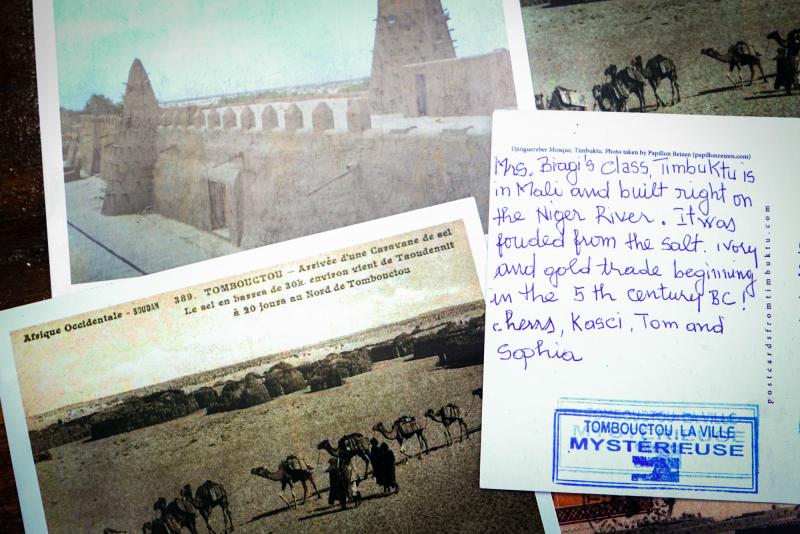 389. TOMBOUCTOU – Arrivée d'une Caravane de sel
Afrique Occidentale - SOUDAN
Le sel en barres de 30k. environ vient de Taoudennit
à 20 jours au Nord de Tombouctou
Djinguereber Mosque, Timbuktu. Photo taken by Papillon Reizen (papillonreizen.com)
Mrs. Biagi's Class, Timbuktu is
in Mali and built right on
the Niger River. It was
fouded from the salt. ivory
and gold trade beginning
in the 5 th century BC!
cheers, Kasci, Tom and
Sophia
postcardsfromtimbuktu.com
TOMBOUCTOU LA VILLE
MYSTÉRIEUSE